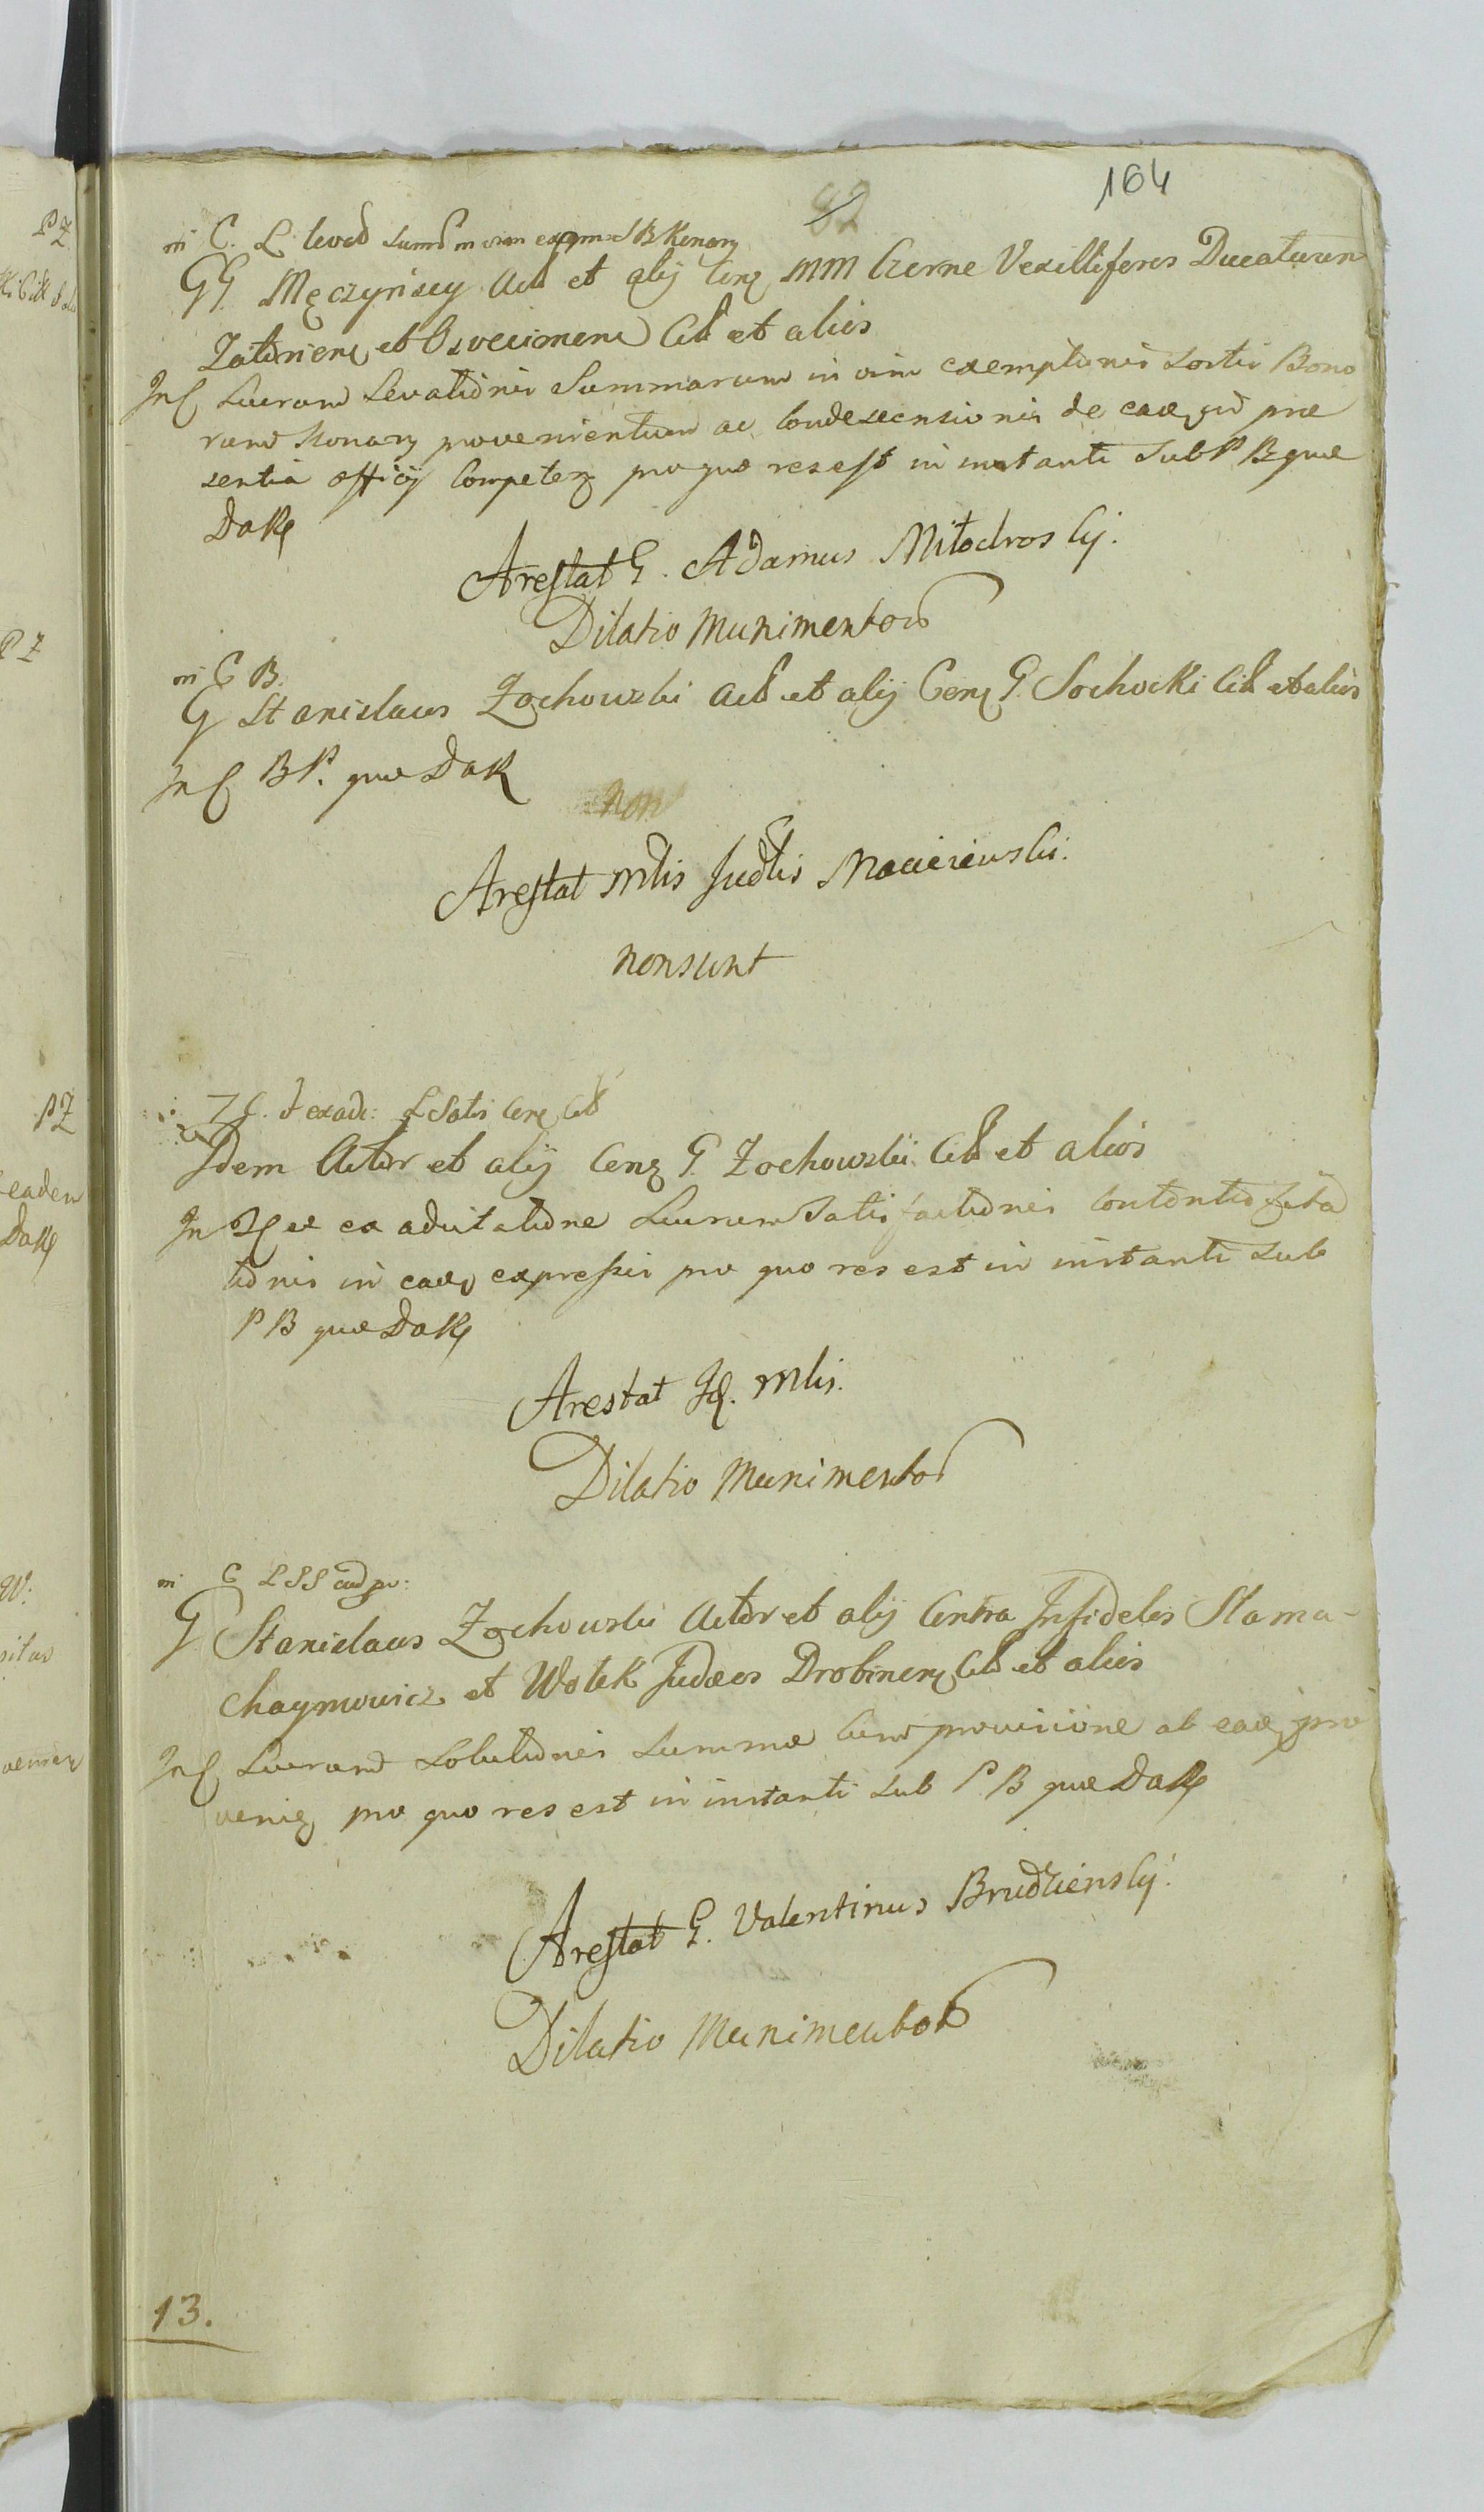 82
164
in C. L levad sum in vim exemp SB Konary
GG Męczynscy Act et alij Cenz MM Czerne Vexilliferos Ducatuum
Zatoriens et Osvecimens Cit et alios
Inf Lucrand Levationis Summarum in vim exemptionis Sortis Bono
rum Konary provenientium ac Condescensionis de eaeq, ad prae
sentia officij Competenz pro quo res est in instanti Sub P B que
Dak
Arestat G. Adamus Miłodros kj.
Dilatio Munimentor
in C B.
G Stanislaus Zochowski Act et alij Cenz G. Sochocki Cit et alios
Inf BP. que Dak
non
Arestat Mlis Judlis Macieiewski.
non sunt
I C. et exadc: L Satis Cenz Cit
Idem Actor et alij Cenz G. Zochowskii Cit et alios
In et ex adcitatione Lucrum Satisfactionis Contentis Cita
tionis in eaeq expressis pro quo res est in instanti Sub
P B que Dak
Arestat Id. Mlis.
Dilatio Munimentor
in C L S S cum pr:
G Stanislaus Zochowski Actor et alij Contra Infideles Slama-
Chaymowicz et Wolek Judaeos Drobinenz Cit et alios
Inf Lucrand Solutionis Summae Cum provisione ab eaeq, pro
venienz pro quo res est in instanti Sub P B que Dak
Arestat G. Valentinus Brudzienskj.
Dilatio Munimentor
13.
PZ
PZ
PZ
eadem
Dak